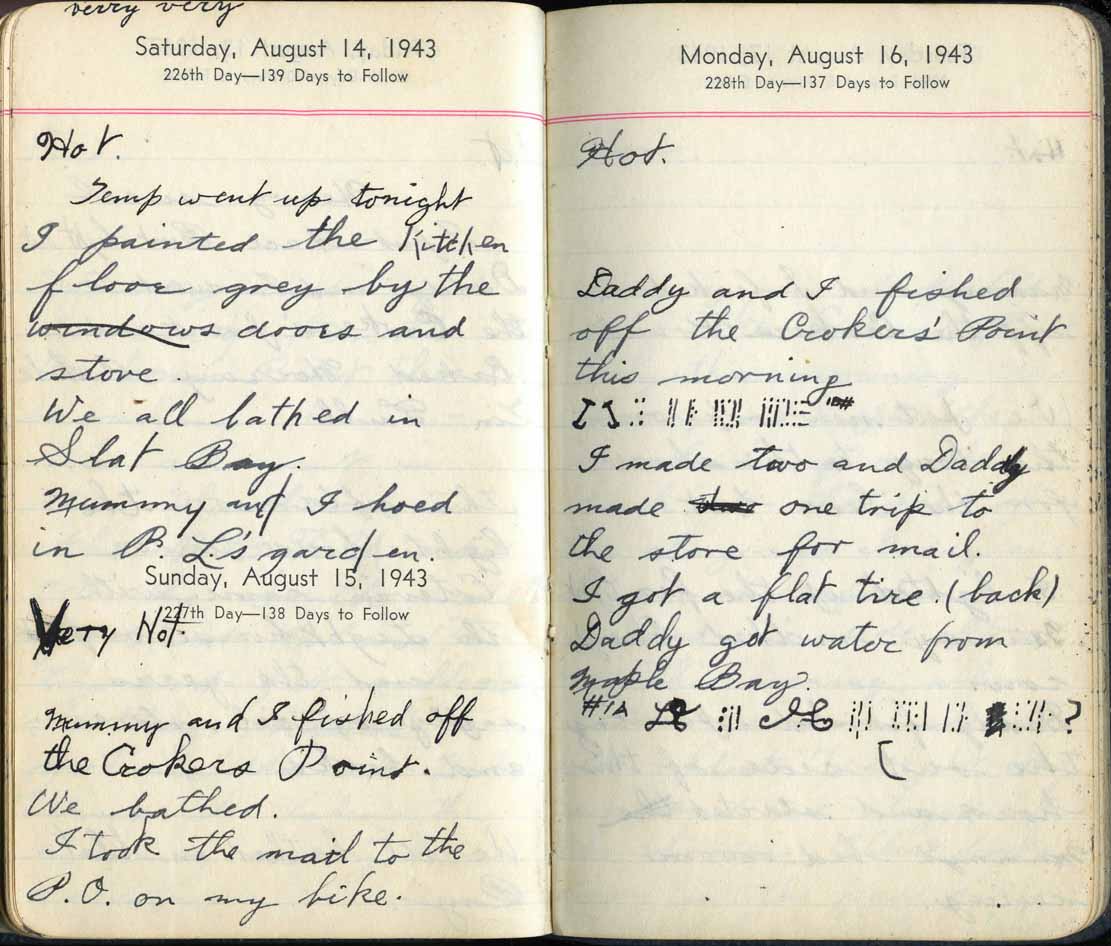 verry verry
Saturday, August 14, 1943
226th Day—139 Days to Follow
Hot.
Temp went up tonight
I painted the kitchen
floor grey by the
windows doors and
stove.
We all bathed in
Slat Bay.
Mummy and I hoed
in P. L's garden.
Sunday, August 15, 1943
227th Day—138 Days to Follow
Very Hot.
Mummy and I fished off
the Crokers Point.
We bathed.
I took the mail to the
P.O. on my bike.
Monday, August 16, 1943
228th Day—137 Days to Follow
Hot.
Daddy and I fished
off the Crokers' Point
this morning
I made two and Daddy
made one trip to
the store for mail.
I got a flat tire. (back)
Daddy got water from
Maple Bay.
#1A
?